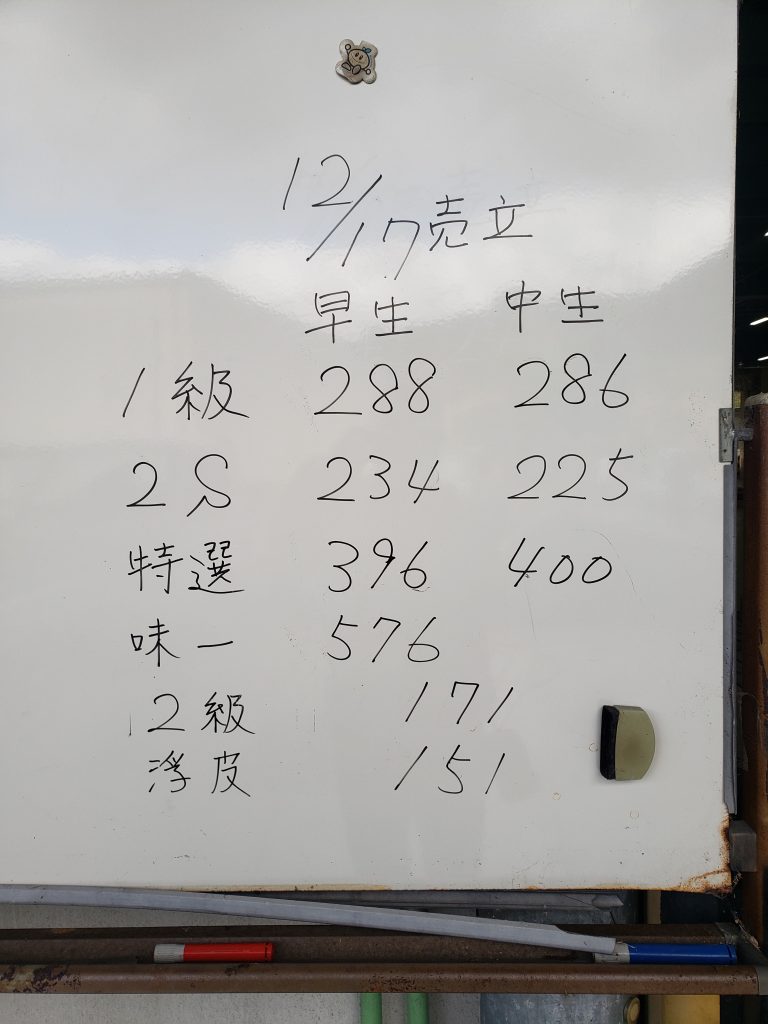 12/17売立
早生 中生
1級 288 286
2S 234 225
特選 396 400
味一 576
2級 171
浮皮 151